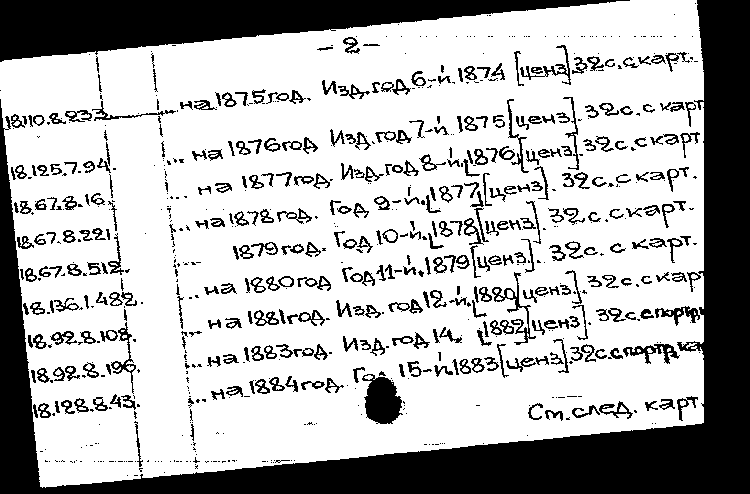 - 2 -
18.110.8.233. ... на 1875 год. Изд. год 6-й. 1874 [ценз]. 32 с. с карт.
18.125.7.94. ... на 1876 год Изд. год 7-й 1875 [ценз]. 32 с. с карт
18.67.8.16. ... на 1877 год. Изд. год 8-й. [1876, [ценз]. 32 с. с карт.
18.67.8.221. ... на 1878 год. Год 9-й. [1877] [ценз]. 32 с. с карт.
18.67.8.512. ... 1879 год. Год 10-й. [1878] [ценз]. 32 с. с карт.
18.136.1.482. ... на 1880 год Год 11-й. 1879 [ценз]. 32 с. с карт.
18.92.8.108. ... на 1881 год. Изд. год 12-й. [1880] [ценз]. 32 с. с карт
18.92.8.196. ... на 1883 год. Изд. год 14. [1882] [ценз]. 32 с. с портр.
18.128.8.43. ... на 1884 год. 15-й. 1883 [ценз]. 32 с. с портр. кар
См. след. карт.